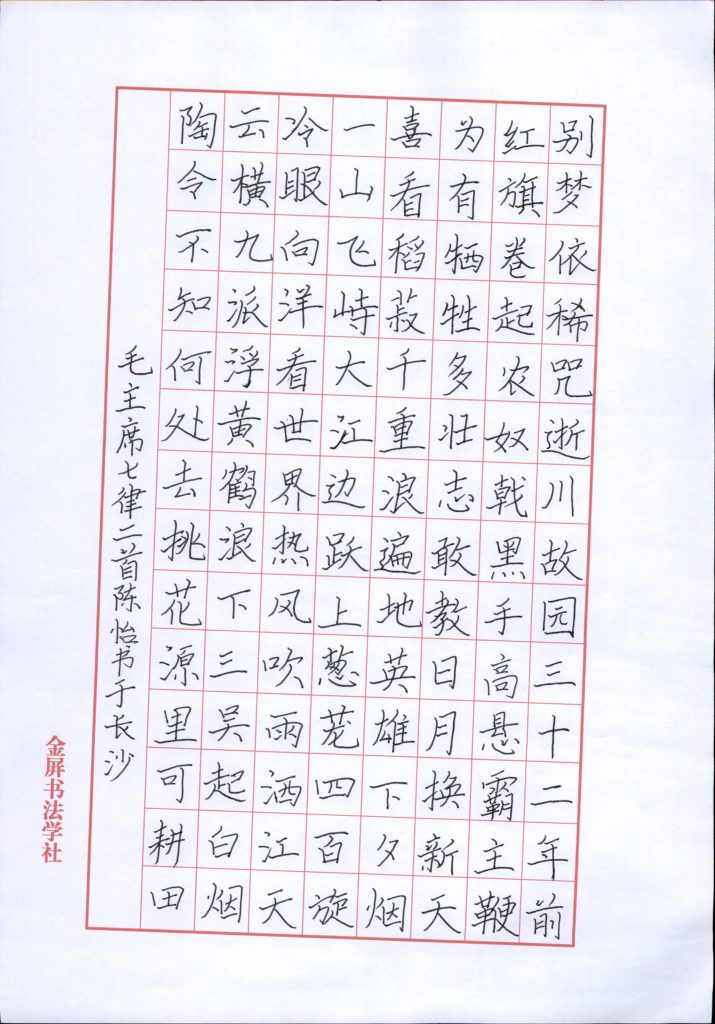 别梦依稀咒逝川故园三十二年前
红旗卷起农奴戟黑手高悬霸主鞭
为有牺牲多壮志敢教日月换新天
喜看稻菽千重浪遍地英雄下夕烟
一山飞峙大江边跃上葱茏四百旋
冷眼向洋看世界热风吹雨洒江天
云横九派浮黄鹤浪下三吴起白烟
陶令不知何处去挑花源里可耕田
毛主席七律二首陈怡书于长沙
金屏书法学社